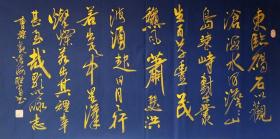 東臨碣石觀
滄海水何澹澹山
島竦峙樹木叢
生百草豐茂
秋風蕭瑟洪
波湧起日月行
若出其中星漢
燦爛若出其裡幸
甚至哉歌以詠志